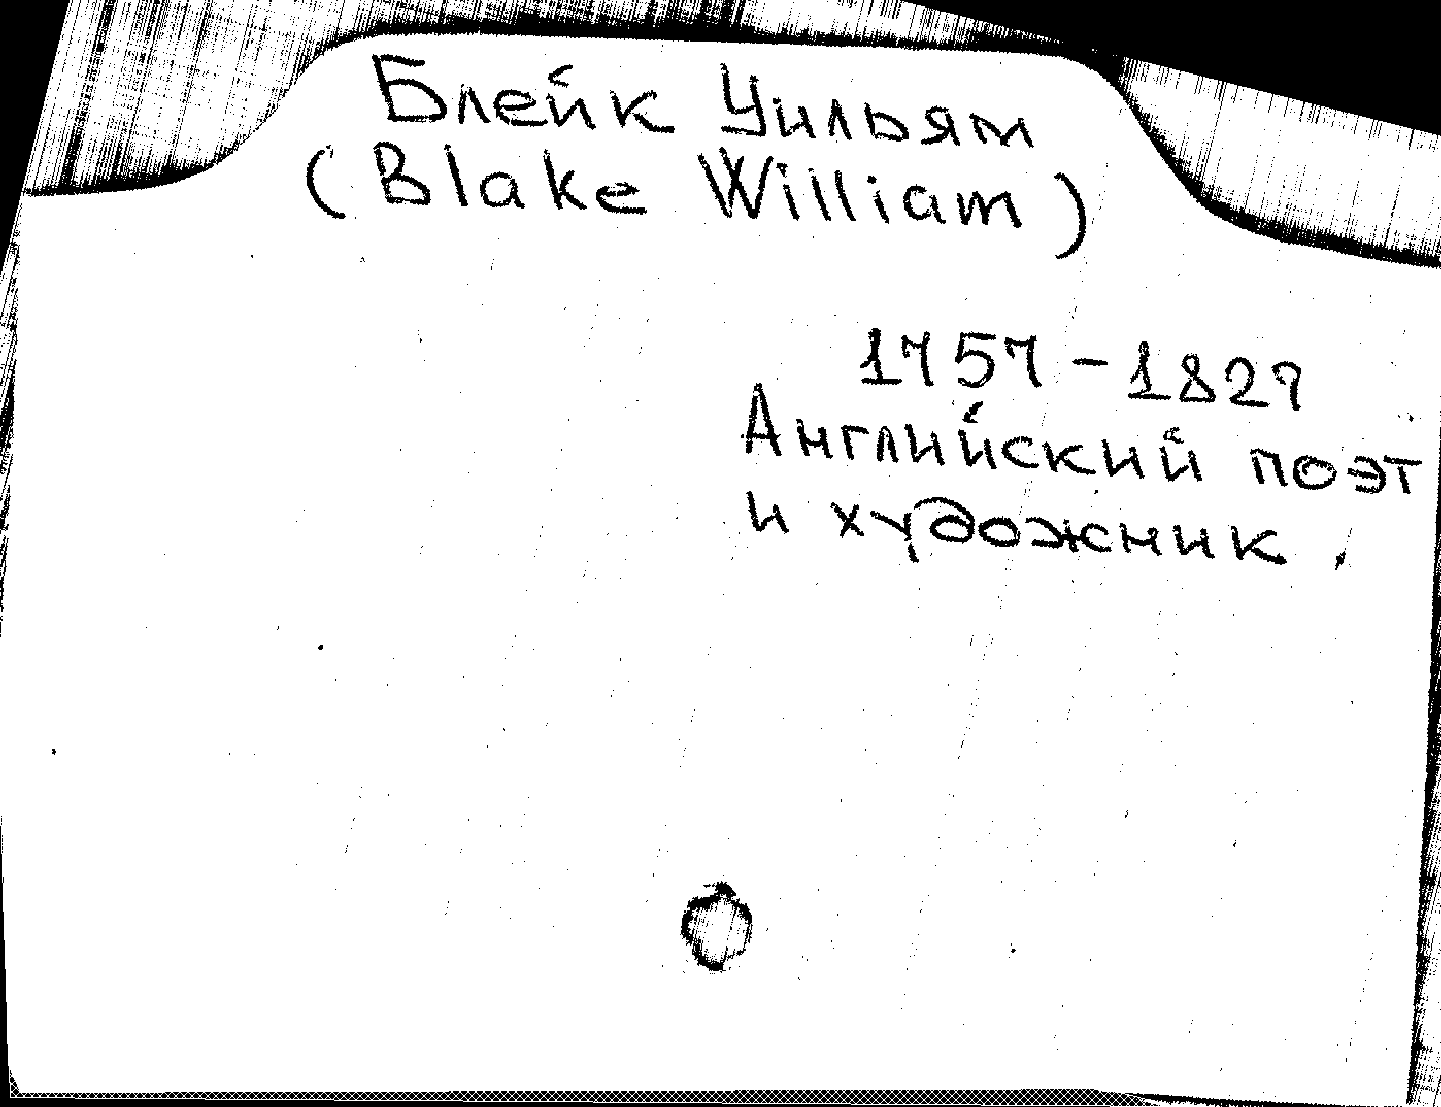 Блейк Уильям
(Blake William)
1757-1827
Английский поэт
и художник.